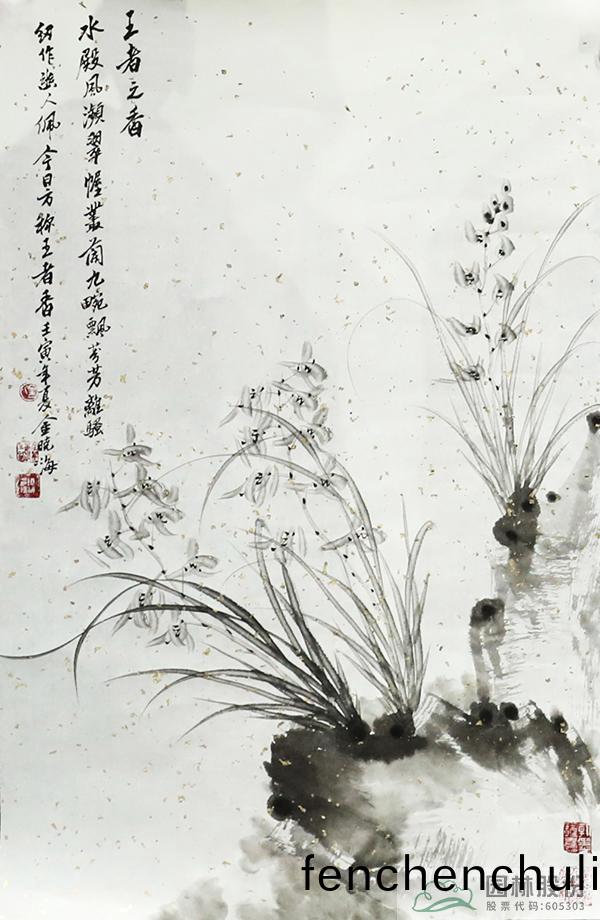 王者之香
水殿风濒翠幄丛兰九畹飘芳芳离骚
纫作逸人佩今日方称王者香壬寅年夏金晓海
fenchenchuli
园林股份
股票代码:605303